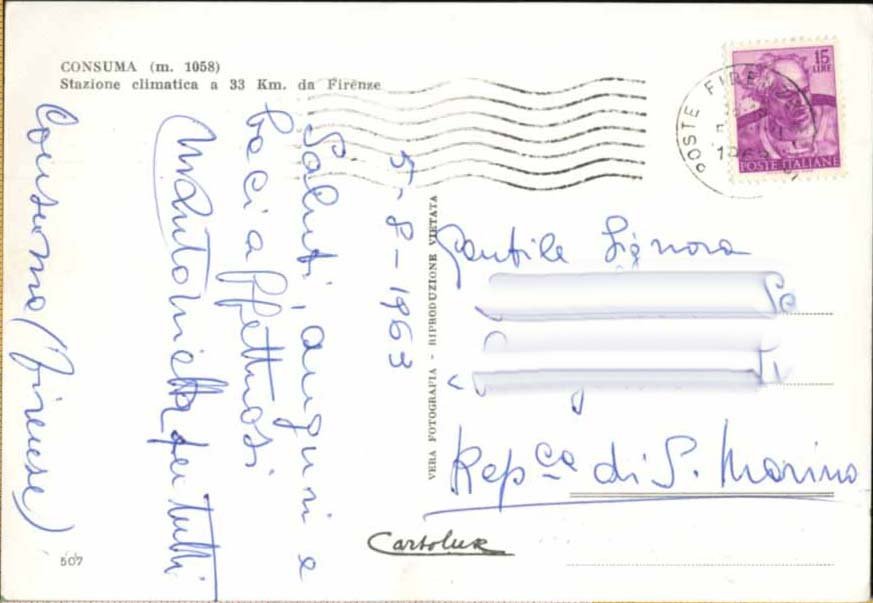 CONSUMA (m. 1058)
Stazione climatica a 33 Km. da Firenze
15
LIRE
POSTE ITALIANE
POSTE FIRE
5-8-1963
Saluti, auguri e
baci affettuosi
Mantonietta per tutti
Consuma (Firenze)
VERA FOTOGRAFIA - RIPRODUZIONE VIETATA
Gentile Signora
Repca di S. Marino
Cartolux
507